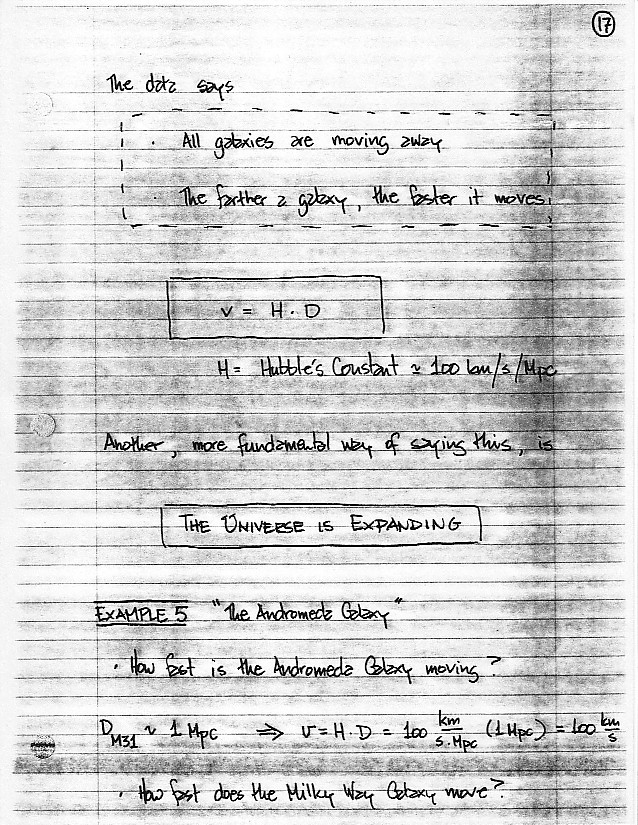 17
The data says
· All galaxies are moving away
· The farther a galaxy, the faster it moves.
v = H · D
H = Hubble's Constant ≃ 100 km/s/Mpc
Another, more fundamental way of saying this, is
THE UNIVERSE IS EXPANDING
EXAMPLE 5 "The Andromeda Galaxy"
· How fast is the Andromeda Galaxy moving?
D_M31 ~ 1 Mpc ⇒ v = H · D = 100 km/s·Mpc (1 Mpc) = 100 km/s
· How fast does the Milky Way Galaxy move?